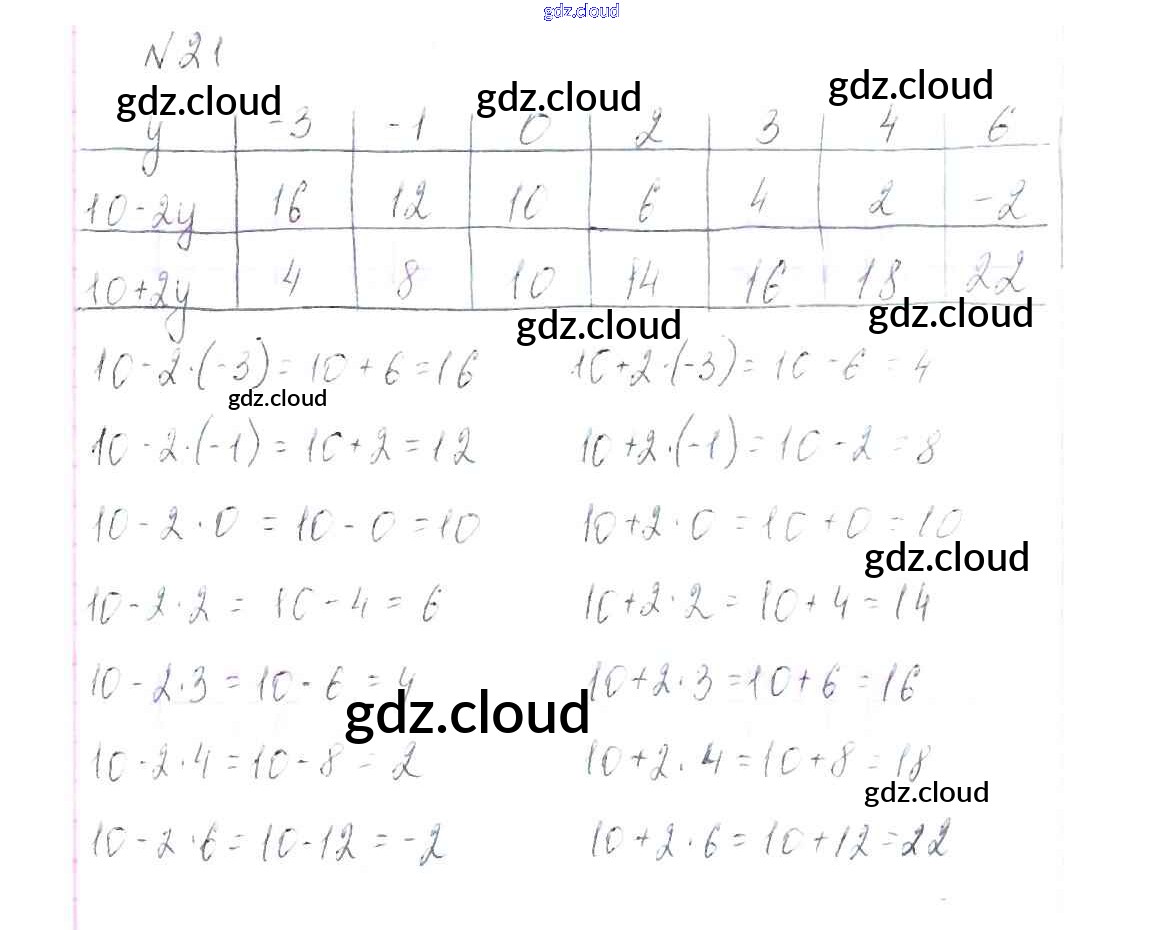 gdz.cloud
N 21
gdz.cloud gdz.cloud gdz.cloud
y -3 -1 0 2 3 4 6
10-2y 16 12 10 6 4 2 -2
10+2y 4 8 10 14 16 18 22
gdz.cloud gdz.cloud
10-2·(-3)=10+6=16 10+2·(-3)=10-6=4
gdz.cloud
10-2·(-1)=10+2=12 10+2·(-1)=10-2=8
10-2·0=10-0=10 10+2·0=10+0=10
gdz.cloud
10-2·2=10-4=6 10+2·2=10+4=14
10-2·3=10-6=4 10+2·3=10+6=16
gdz.cloud
10-2·4=10-8=2 10+2·4=10+8=18
gdz.cloud
10-2·6=10-12=-2 10+2·6=10+12=22